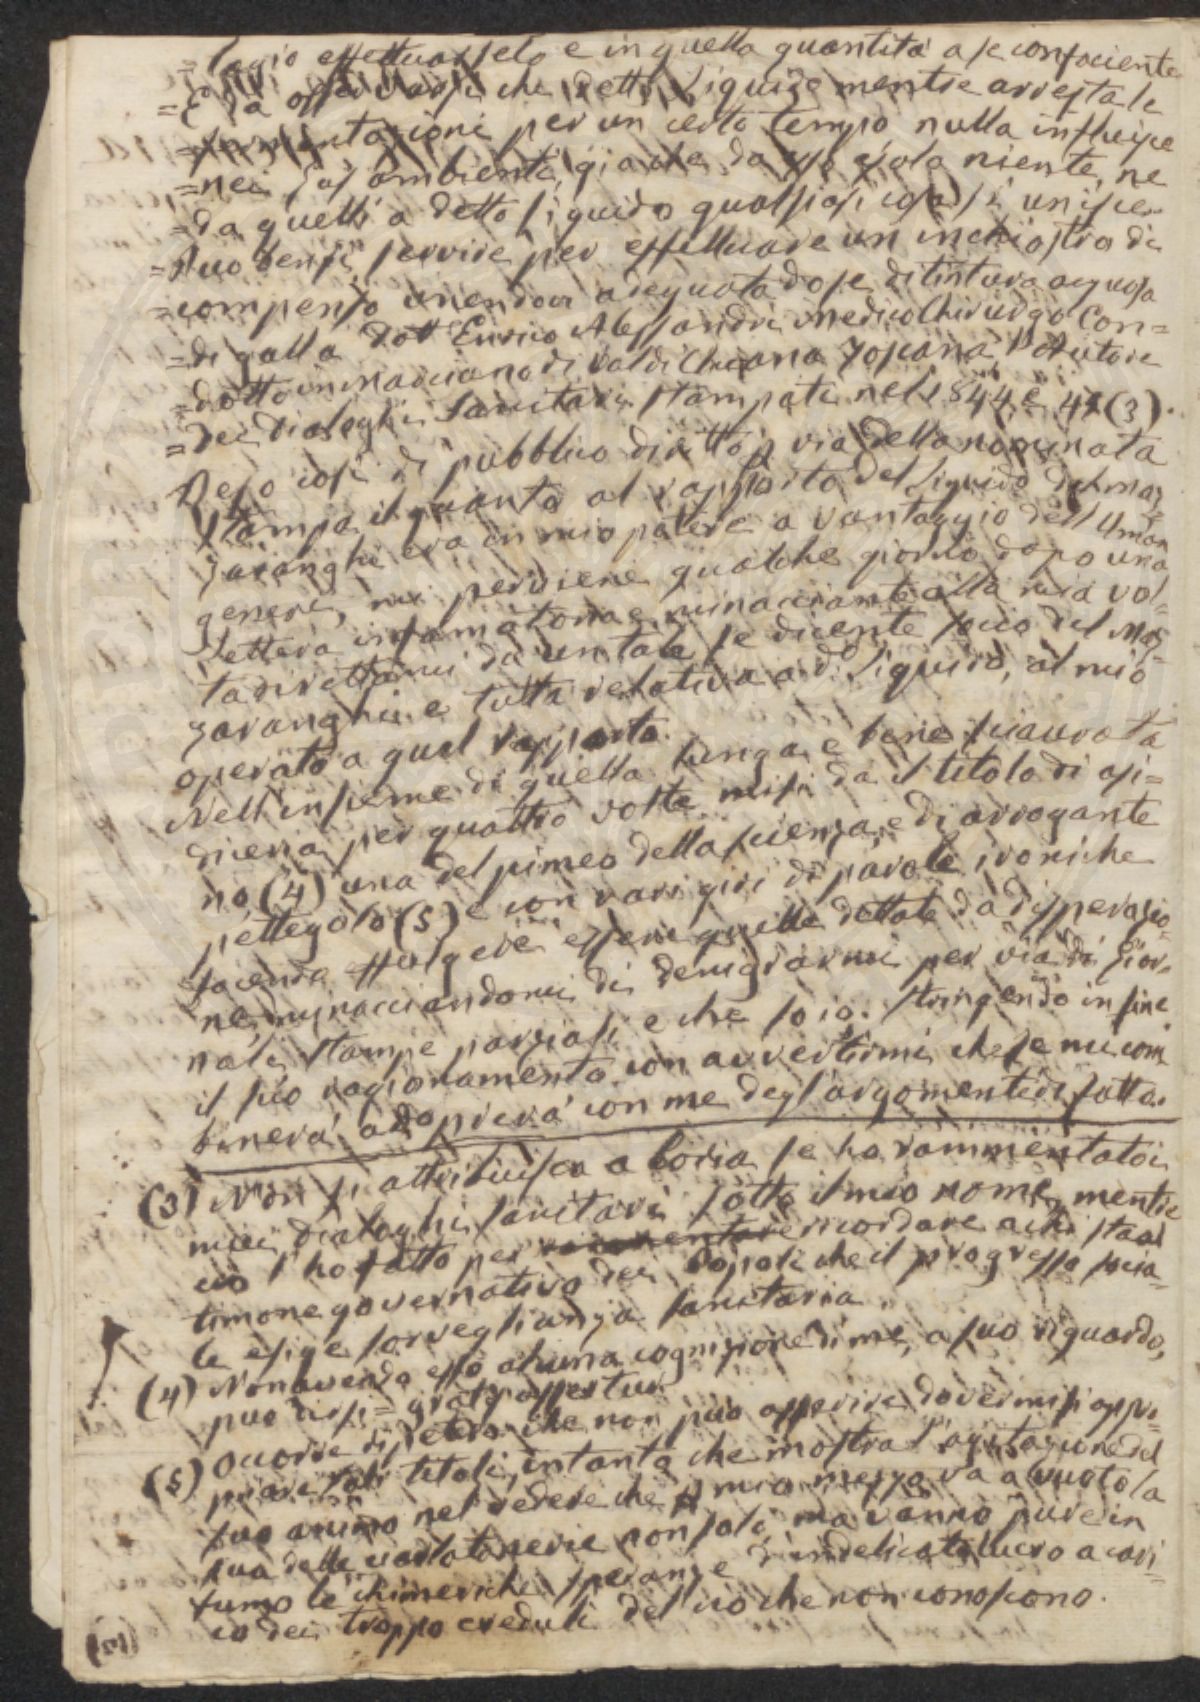 =tagio effettuarselo e in quella quantità a se confaciente
=E da osservarsi che detto Liquido mentre arresta le
=fermentazioni per un certo tempo nulla influisce
=nei gas ambienti, giacche da esso esala niente, ne
=da quelli a detto liquido qualsiasi cosa si unisce.
=Puo bensi servire per effettuare un inchiostro di
=compenso unendovi adeguata dose di tintura acquosa
=di galla Dott Enrico Alessandri medico Chirurgo Con=
=dotto in Marciano di Valdichiana Toscana l'Autore
=dei Dialoghi Sanitari stampati nel 1844 e 45 (3).
Reso così di pubblico diritto p via della nominata
stampa il quanto al rapporto del Liquido del Maz
zaranghi era in mio potere a vantaggio dell'Uman
genere, mi perviene qualche giorno dopo una
lettera infamatoria e minacciante alla mia vol=
ta direttami da un tale se dicente socio del Maz=
zaranghi e tutta relativa a do Liquido, al mio
operato a qual rapporto.
Nell'insieme di quella lunga e bene sciaurata
diceria per quattro volte misi da il titolo di asi=
no (4) una del pimeo della scienza, e di arrogante
pettegolo (5) e con vari giri di parole ironiche
facenda effulgere essere quelle dettate da disperazio=
ne, minacciandomi di denigrarmi per via di Gior=
nali, stampe parziali e che so io. Stringendo in fine
il suo ragionamento con avvertirmi che se mi com
binerà adoprerà con me degl'argomenti di fatto.
(3) Non si attribuisca a boria se ho rammentato i
miei dialoghi sanitari sotto il mio nome, mentre
ciò l'ho fatto per ricordare a chi sta al
timone governativo dei Popoli che il progresso socia=
le esige sorveglianza sanitaria.
(4) Non avendo esso alcuna cognizione di me, a suo riguardo,
puo dirsi = gratis assertur
(5) Occorre ripetere che non puo asserire dovermisi appro=
priare tali titoli, intanto che mostra l'agitazione del
suo animo nel vedere che p mio mezzo va a vuoto la
sua delle ciarlatanerie non solo, ma vanno pure in
fumo le chimeriche speranze d'indelicato lucro a cari=
co dei troppo creduli del ciò che non conoscono.
(13)